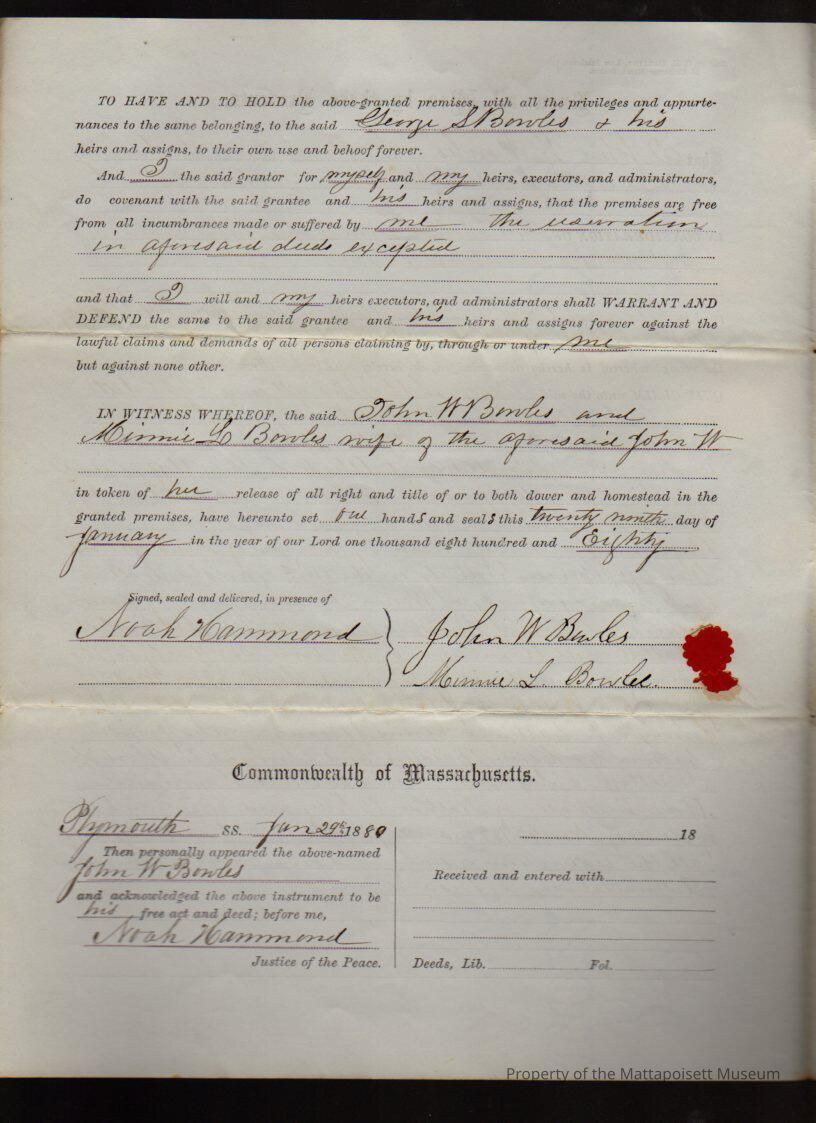 TO HAVE AND TO HOLD the above-granted premises, with all the privileges and appurte-
nances to the same belonging, to the said George S Bowles & his
heirs and assigns, to their own use and behoof forever.
And I the said grantor for myself and my heirs, executors, and administrators,
do covenant with the said grantee and his heirs and assigns, that the premises are free
from all incumbrances made or suffered by me the reservation
in aforesaid deeds excepted
and that I will and my heirs executors, and administrators shall WARRANT AND
DEFEND the same to the said grantee and his heirs and assigns forever against the
lawful claims and demands of all persons claiming by, through or under me
but against none other.
IN WITNESS WHEREOF, the said John W Bowles and
Minnie L Bowles wife of the aforesaid John W
in token of her release of all right and title of or to both dower and homestead in the
granted premises, have hereunto set our hands and seals this twenty ninth day of
January in the year of our Lord one thousand eight hundred and Eighty
Signed, sealed and delivered, in presence of
Noah Hammond John W Bowles
Minnie L. Bowles.
Commonwealth of Massachusetts.
Plymouth SS. Jan 29th 1880
Then personally appeared the above-named
John W Bowles
and acknowledged the above instrument to be
his free act and deed; before me,
Noah Hammond
Justice of the Peace.
18
Received and entered with
Deeds, Lib. Fol.
Property of the Mattapoisett Museum